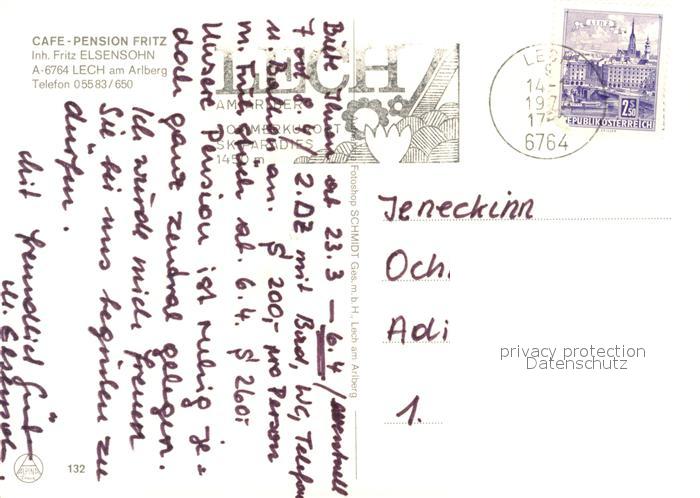 CAFE-PENSION FRITZ
Inh. Fritz ELSENSOHN
A-6764 LECH am Arlberg
Telefon 05583/650
LECH
AM ARLBERG
SOMMERKURORT
SKIPARADIES
1450 m
LECH
14.
197
17
6764
LINZ
2.50
S
REPUBLIK ÖSTERREICH
Biete Ihnen ab 23.3 – 6.4 /
7 od. 2. DZ mit Bad, WC, Telefon
u. Balkon an. § 200,- pro Person
m. Frühstück ab. 6.4. § 260,-
Unsere Pension ist ruhig je-
doch ganz zentral gelegen.
Ich würde mich freuen
Sie bei uns begrüßen zu
dürfen.
Mit freundlich
Fotoshop SCHMIDT Ges.m.b.H., Lech am Arlberg
Jeneckinn
Och
Adi
1.
privacy protection
Datenschutz
ALPINA
132